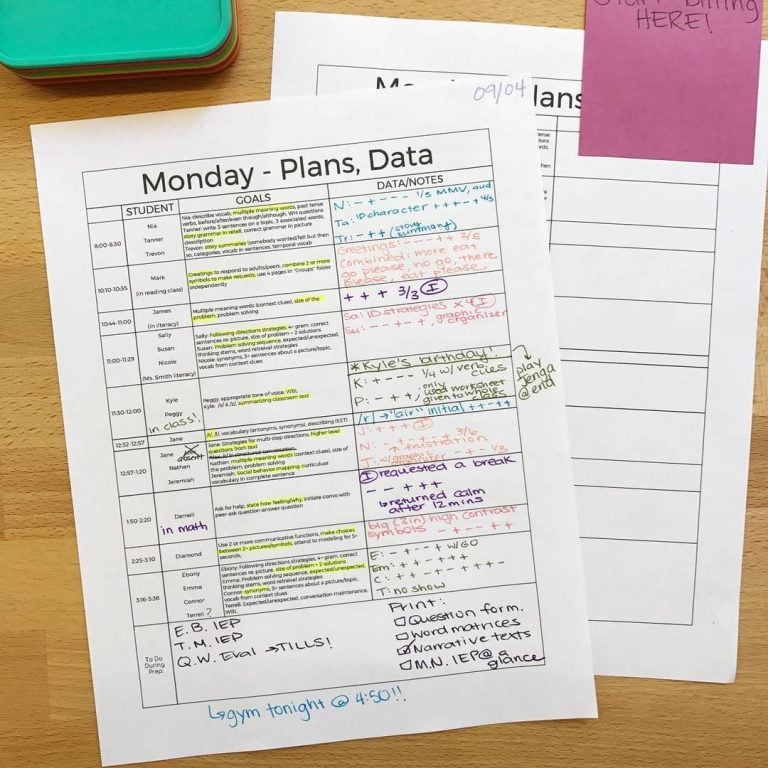 Start billing
HERE!
09/04
Monday - Plans, Data
STUDENT GOALS DATA/NOTES
8:00-8:30
Nia
Tanner
Trevon
Nia: describe vocab, multiple meaning words, past tense
verbs, before/after/even though/although, WH questions
Tanner: write 3 sentences on a topic, 3 associated words,
story grammar in retell, correct grammar in picture
description
Trevon: story summaries (somebody wanted/felt but then
so, categories, vocab in sentences, temporal vocab
N: - + - - - 1/5 MMV, aud
Ta: ID character + + + - + 4/5
Tr: - + + (story
summary)
10:10-10:35
Mark
(in reading class)
Greetings to respond to adults/peers, combine 2 or more
symbols to make requests, use 4 pages in 'Groups' folder
independently
Greetings: - - - + + 2/5
Combined: more eat
go please, no go, there
please, eat please
10:44-11:00
James
(in literacy)
Multiple meaning words (context clues), size of the
problem, problem solving
+ + + 3/3 I
11:00-11:29
Sally
Susan
Nicole
(Ms. Smith literacy)
Sally: Following directions strategies, 4+ gram. correct
sentences re: picture, size of problem + 2 solutions
Susan: Problem solving sequence, expected/unexpected,
thinking stems, word retrieval strategies
Nicole: synonyms, 3+ sentences about a picture/topic,
vocab from context clues
Sa: ID strategies x 4 I
Su: - - + - +, graphic
organizer
11:30-12:00
Kyle
Peggy
in class!
Peggy: appropriate tone of voice, WBL
Kyle: /s/ & /z/, summarizing classroom text
*Kyle's birthday!
K: + - - - 1/4 w/ verb
cues
P: - + +, only
used worksheet
given to whole
class
play
Jenga
@ end
12:52-12:57
Jane
/s/, /l/, vocabulary (antonyms, synonyms), describing (EET)
/r/ → "air" initial + + - + +
12:57-1:20
Jane
absent
Nathan
Jeremiah
Jane: Strategies for multi-step directions, higher level
questions from text
Nathan: multiple meaning words (context clues), size of
the problem, problem solving
Jeremiah: Social behavior mapping, curricular
vocabulary in complete sentence
J: + + + I
frustration
1:50-2:20
Darnell
in math
Ask for help, state how feeling/why, initiate convo with
peer-ask question-answer question
I requested a break
- - + + +
↳ returned calm
after 12 mins
2:25-3:10
Diamond
Use 2 or more communicative functions, make choices
between 2+ pictures/symbols, attend to modeling for 5+
seconds,
big (3in) high contrast
symbols - + - - + +
3:16-3:36
Ebony
Emma
Connor
Terrell ?
Ebony: Following directions strategies, 4+ gram. correct
sentences re: picture, size of problem + 2 solutions
Emma: Problem solving sequence, expected/unexpected,
thinking stems, word retrieval strategies
Connor: synonyms, 3+ sentences about a picture/topic,
vocab from context clues
Terrell: Expected/unexpected, conversation maintenance,
WBL
E: - + - - + w/GO
T: no show
To Do
During
Prep:
E.B. IEP
T.M. IEP
Q.W. Eval → TILLS!
Print:
Question form.
Word matrices
Narrative texts
M.N. IEP @ a
glance
↳ gym tonight @ 4:50!!